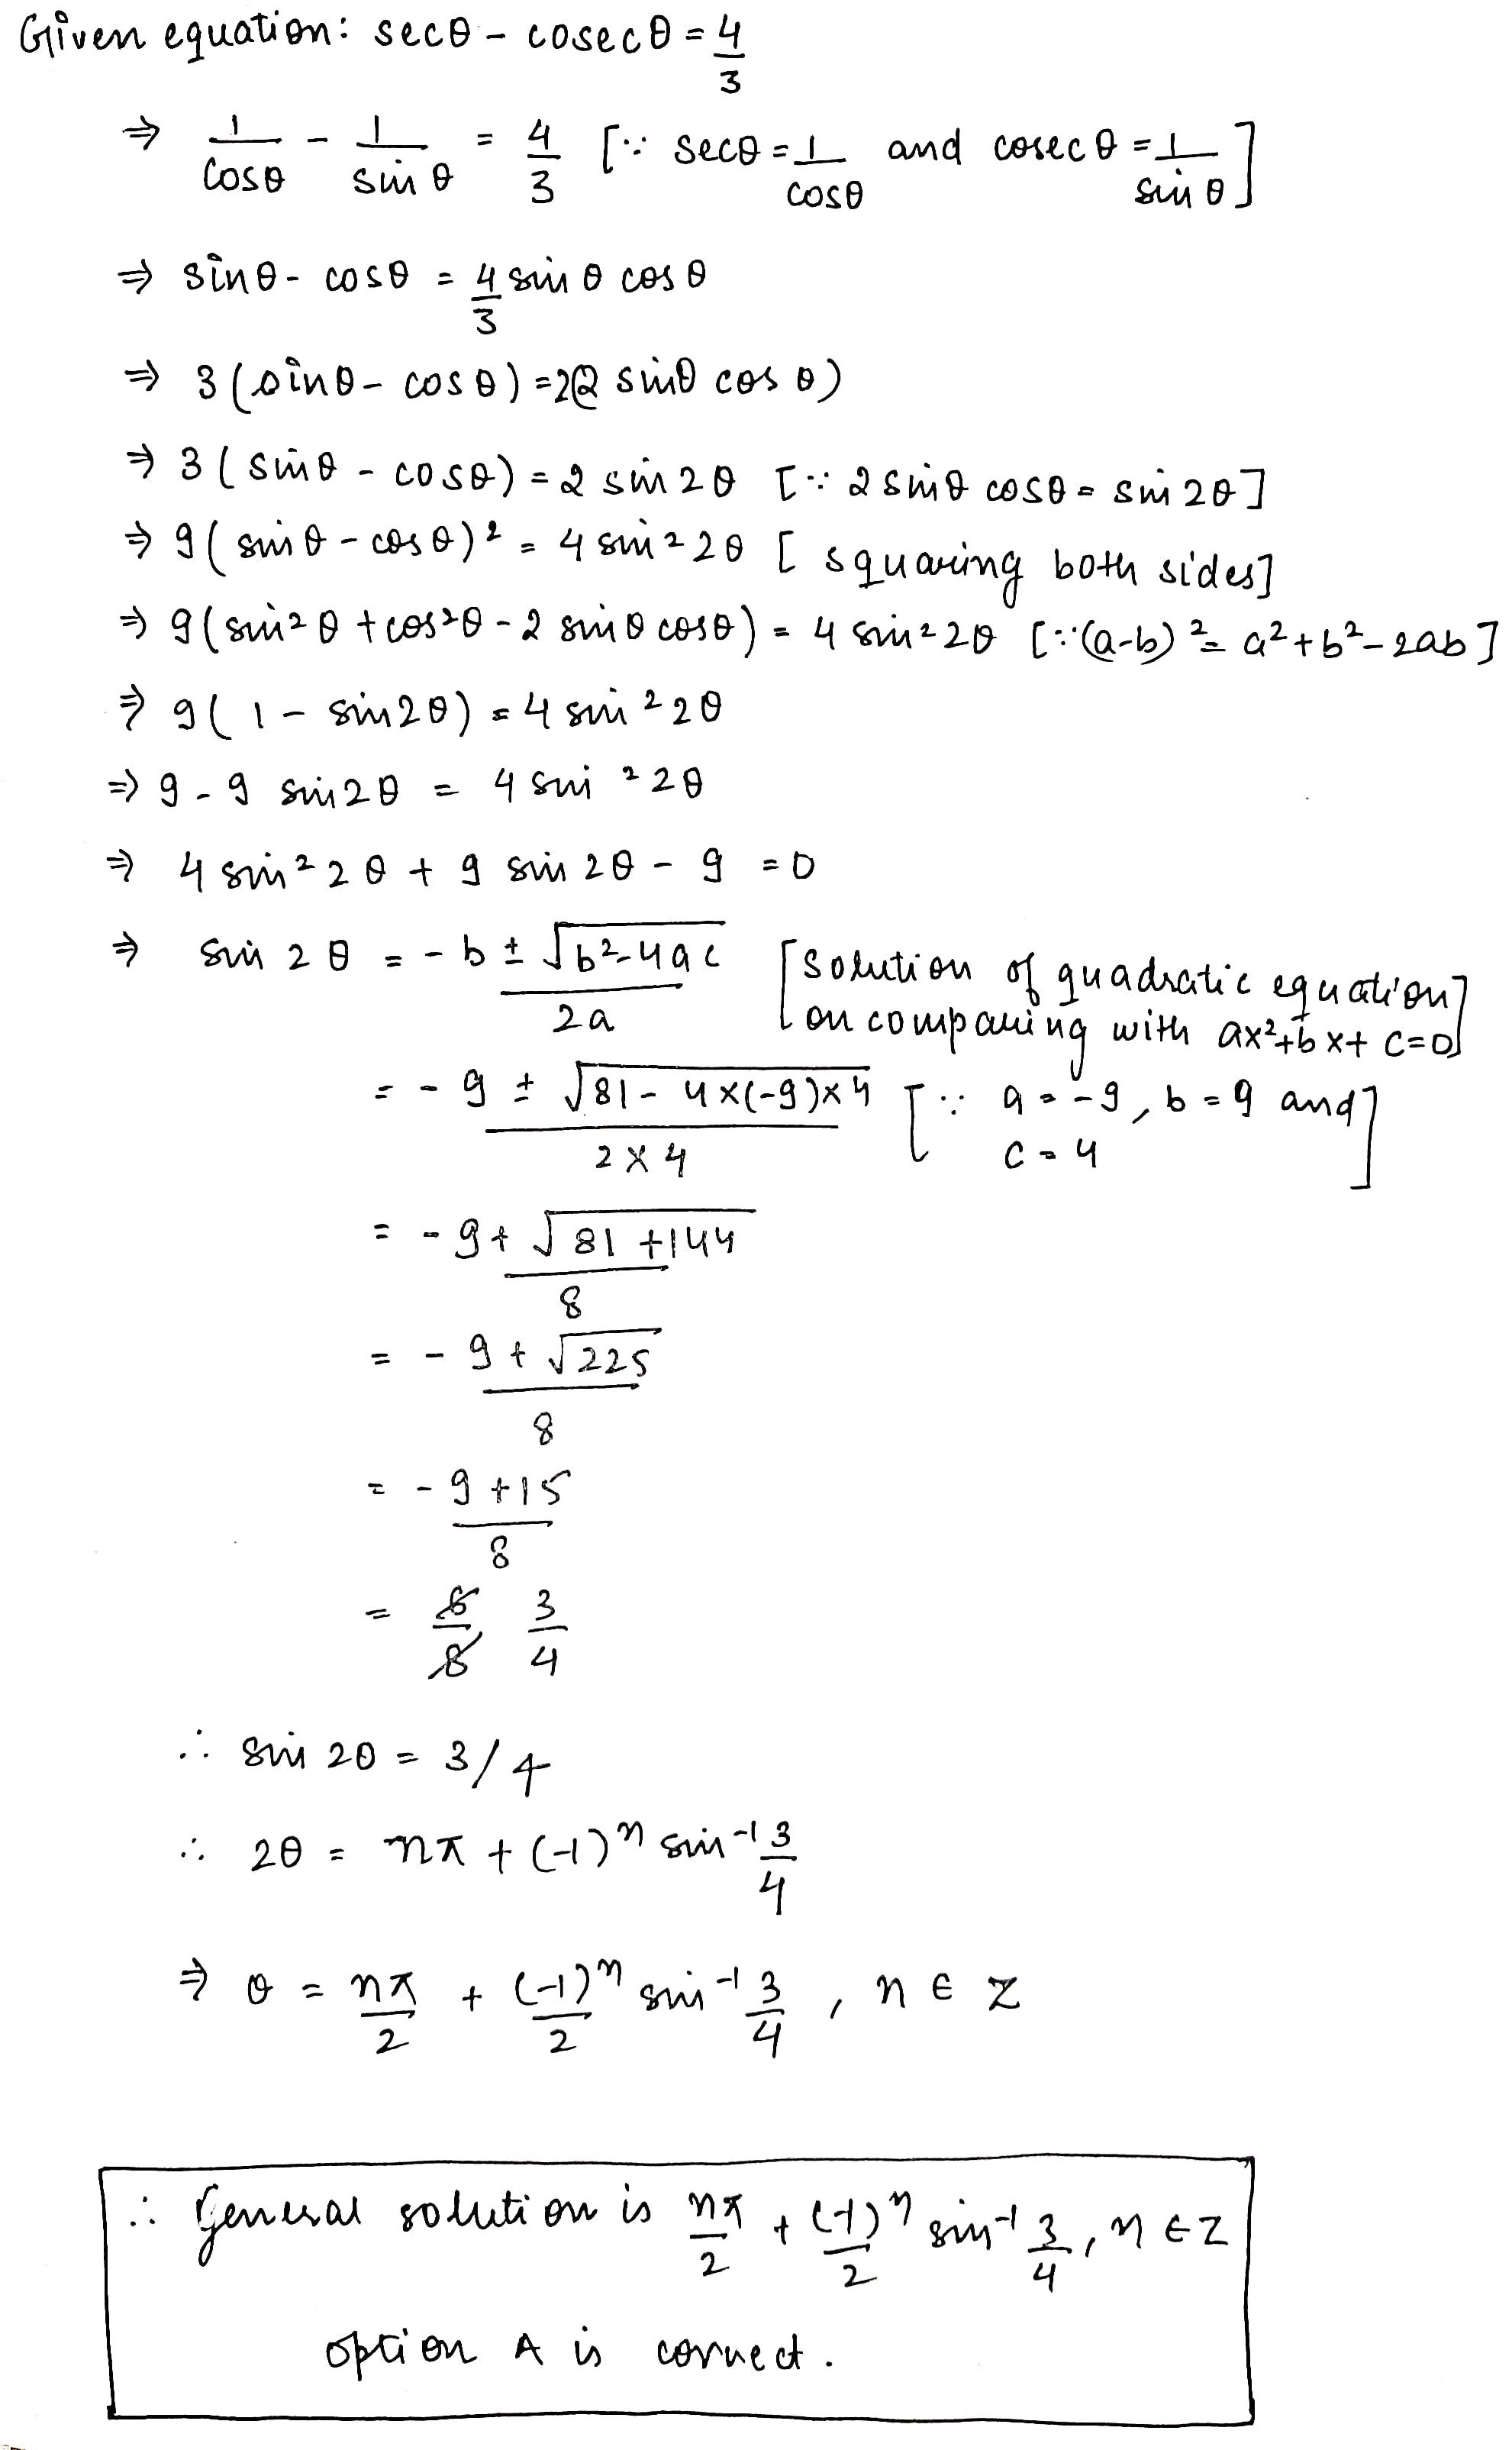 Given equation: secθ - cosecθ = 4/3
⇒ 1/cosθ - 1/sinθ = 4/3 [∵ secθ = 1/cosθ and cosecθ = 1/sinθ]
⇒ sinθ - cosθ = 4/3 sinθ cosθ
⇒ 3(sinθ - cosθ) = 2(2 sinθ cosθ)
⇒ 3(sinθ - cosθ) = 2 sin2θ [∵ 2 sinθ cosθ = sin2θ]
⇒ 9(sinθ - cosθ)² = 4 sin²2θ [squaring both sides]
⇒ 9(sin²θ + cos²θ - 2 sinθ cosθ) = 4 sin²2θ [∵ (a-b)² = a²+b²-2ab]
⇒ 9(1 - sin2θ) = 4 sin²2θ
⇒ 9 - 9 sin2θ = 4 sin²2θ
⇒ 4 sin²2θ + 9 sin2θ - 9 = 0
⇒ sin2θ = -b ± √b²-4ac / 2a [solution of quadratic equation on comparing with ax²+bx+c=0]
= -9 ± √81 - 4×(-9)×4 / 2×4 [∵ a = -9, b = 9 and c = 4]
= -9 + √81+144 / 8
= -9 + √225 / 8
= -9+15 / 8
= 6/8 3/4
∴ sin2θ = 3/4
∴ 2θ = nπ + (-1)ⁿ sin⁻¹ 3/4
⇒ θ = nπ/2 + (-1)ⁿ/2 sin⁻¹ 3/4, n ∈ Z
∴ General solution is nπ/2 + (-1)ⁿ/2 sin⁻¹ 3/4, n ∈ Z
option A is correct.